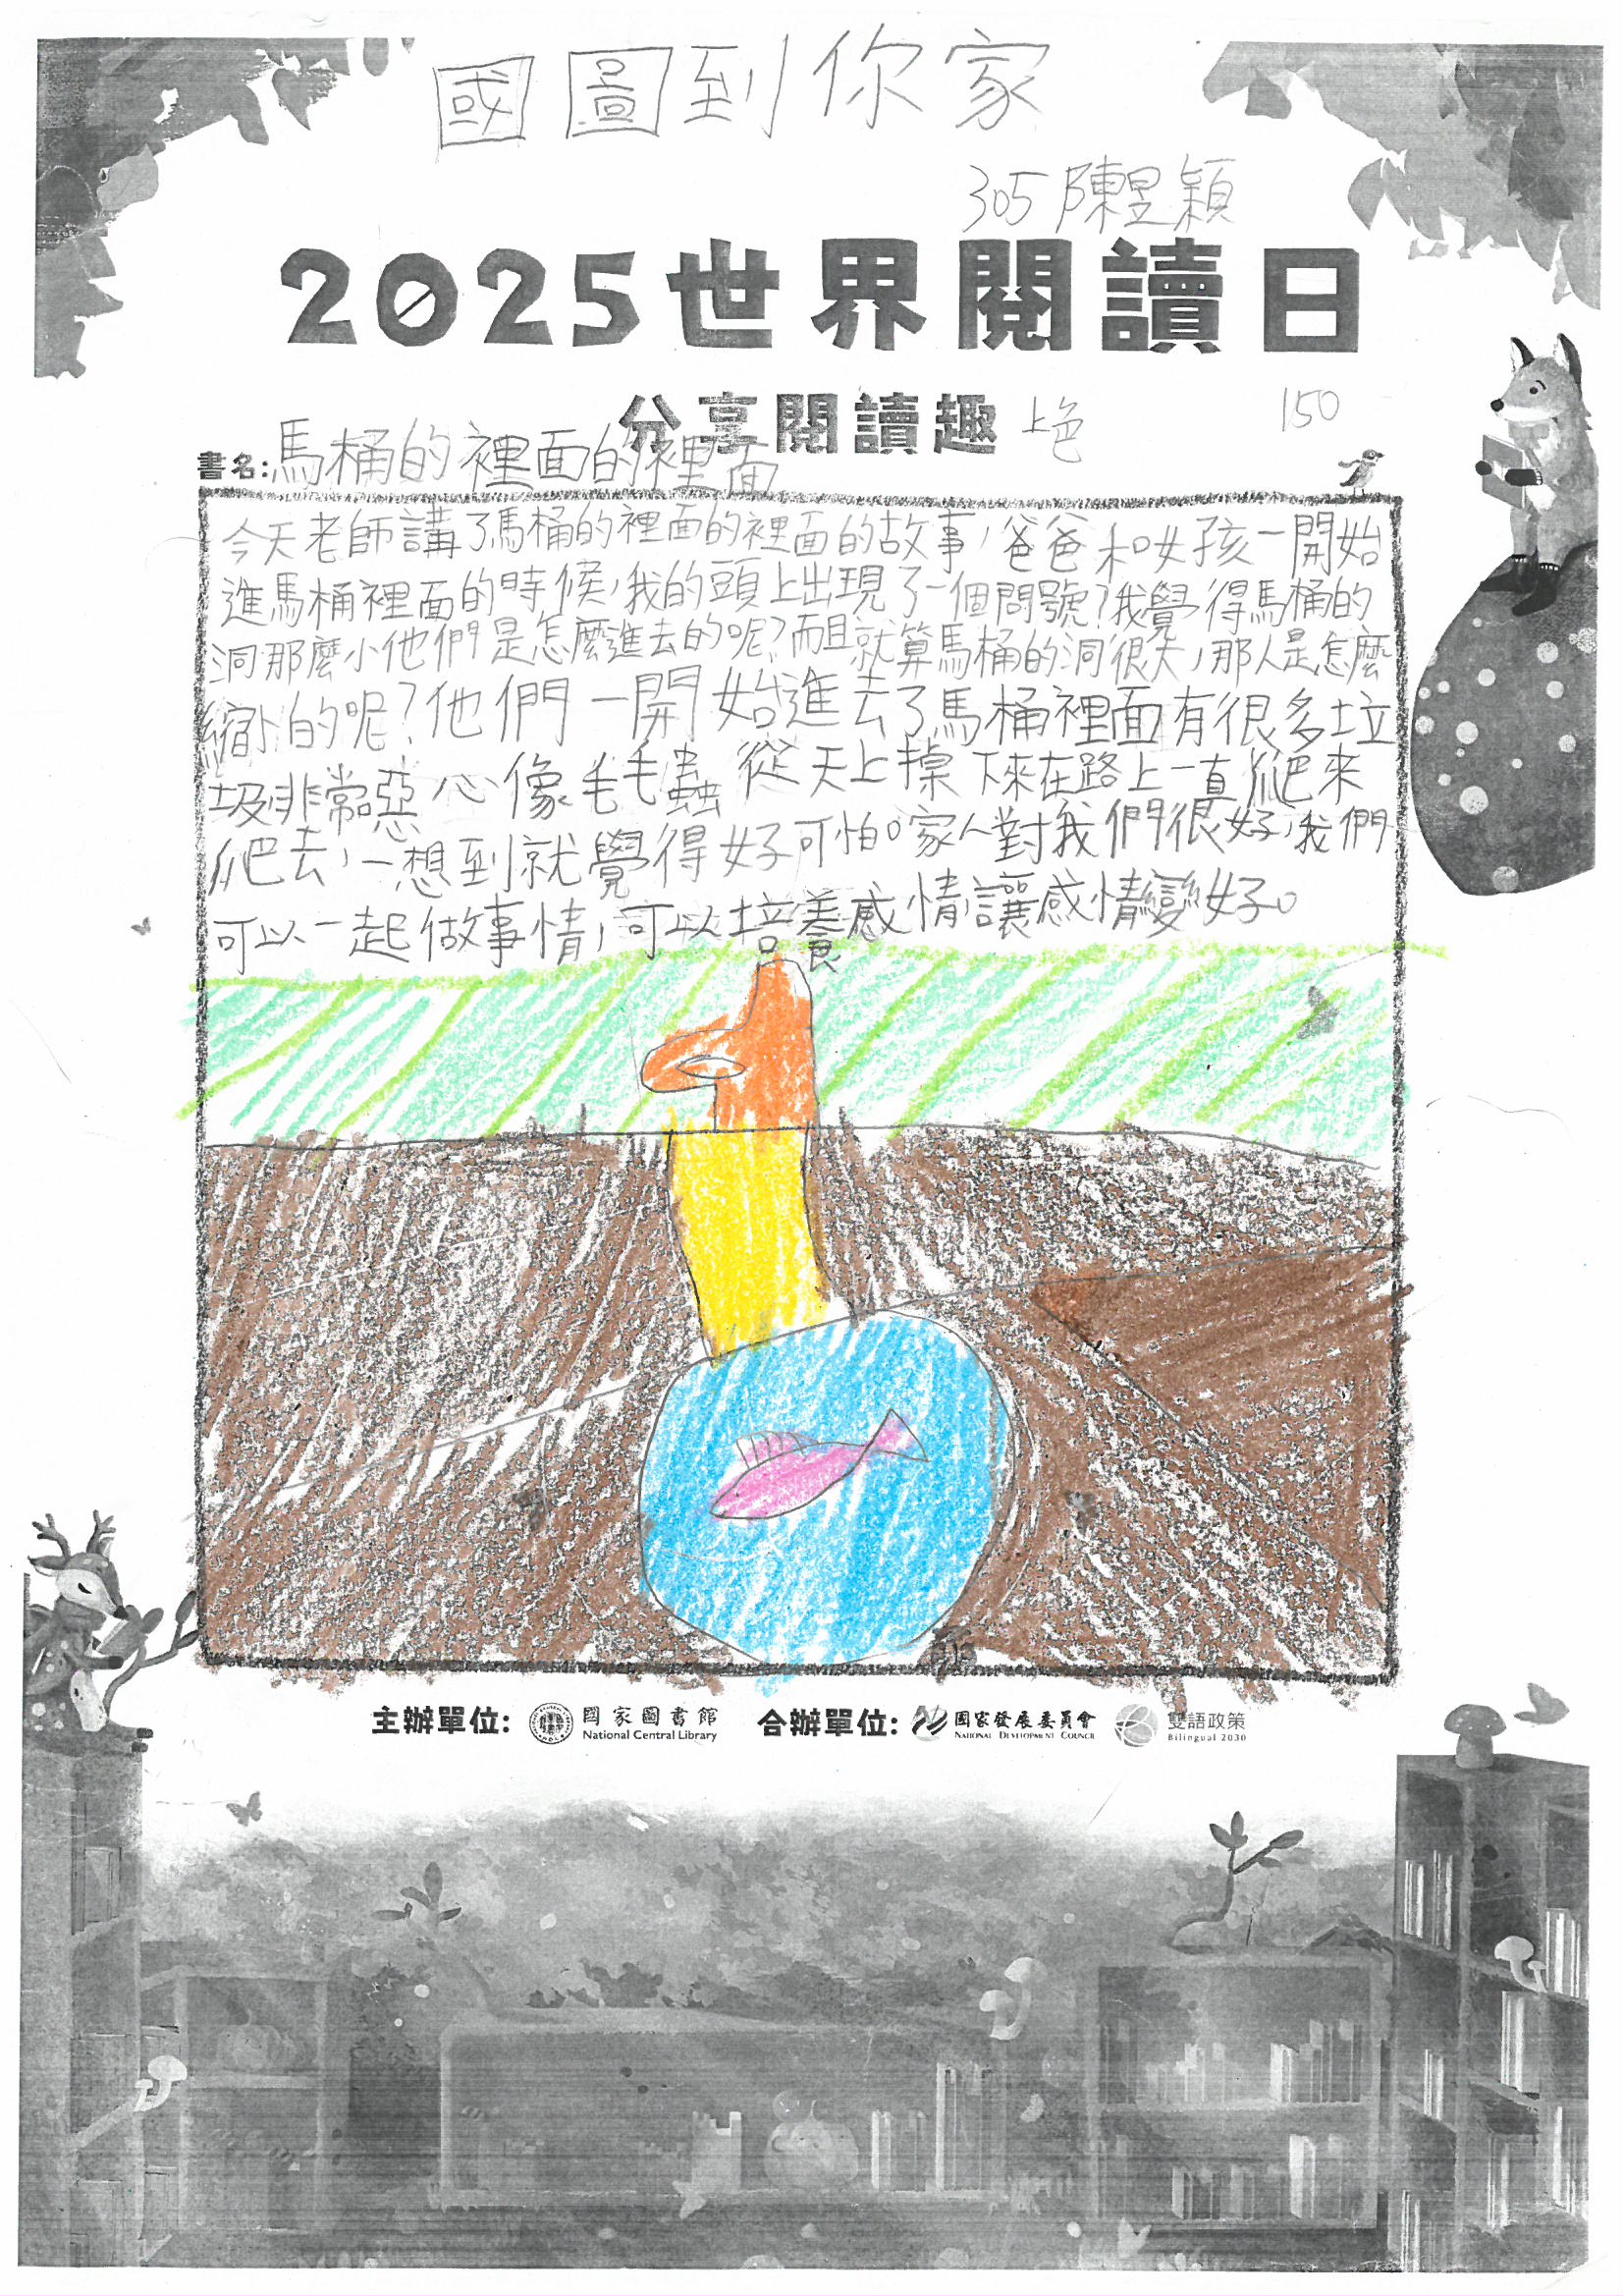 國圖到你家
305 陳昱穎
2025世界閱讀日
分享閱讀趣
上色
150
書名:馬桶的裡面的裡面
今天老師講了馬桶的裡面的裡面的故事,爸爸和女孩一開始
進馬桶裡面的時候,我的頭上出現了一個問號?我覺得馬桶的
洞那麼小他們是怎麼進去的呢?而且就算馬桶的洞很大,那人是怎麼
縮小的呢?他們一開始進去了馬桶裡面有很多垃
圾非常噁心像毛毛蟲從天上掉下來在路上一直爬來
爬去,一想到就覺得好可怕。家人對我們很好,我們
可以一起做事情,可以培養感情讓感情變好。
主辦單位: 國家圖書館 National Central Library 合辦單位: 國家發展委員會 NATIONAL DEVELOPMENT COUNCIL 雙語政策 Bilingual 2030